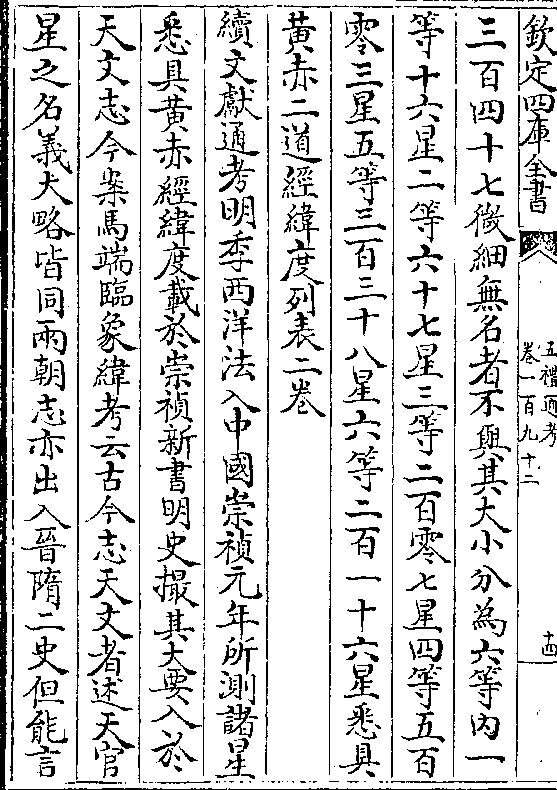 欽定四庫全書
五禮通考
卷一百九十二
十四
三百四十七微細無名者不與其大小分為六等内一
等十六星二等六十七星三等二百零七星四等五百
零三星五等三百三十八星六等二百一十六星悉具
黄赤二道經緯度列表二巻
續文獻通考明季西洋法入中國崇禎元年所測諸星
悉具黄赤經緯度載於崇禎新書明史撮其大要入於
天文志今案馬端臨象緯考云古今志天文者述天官
星之名義大略皆同兩朝志亦出入晉隋二史但能言